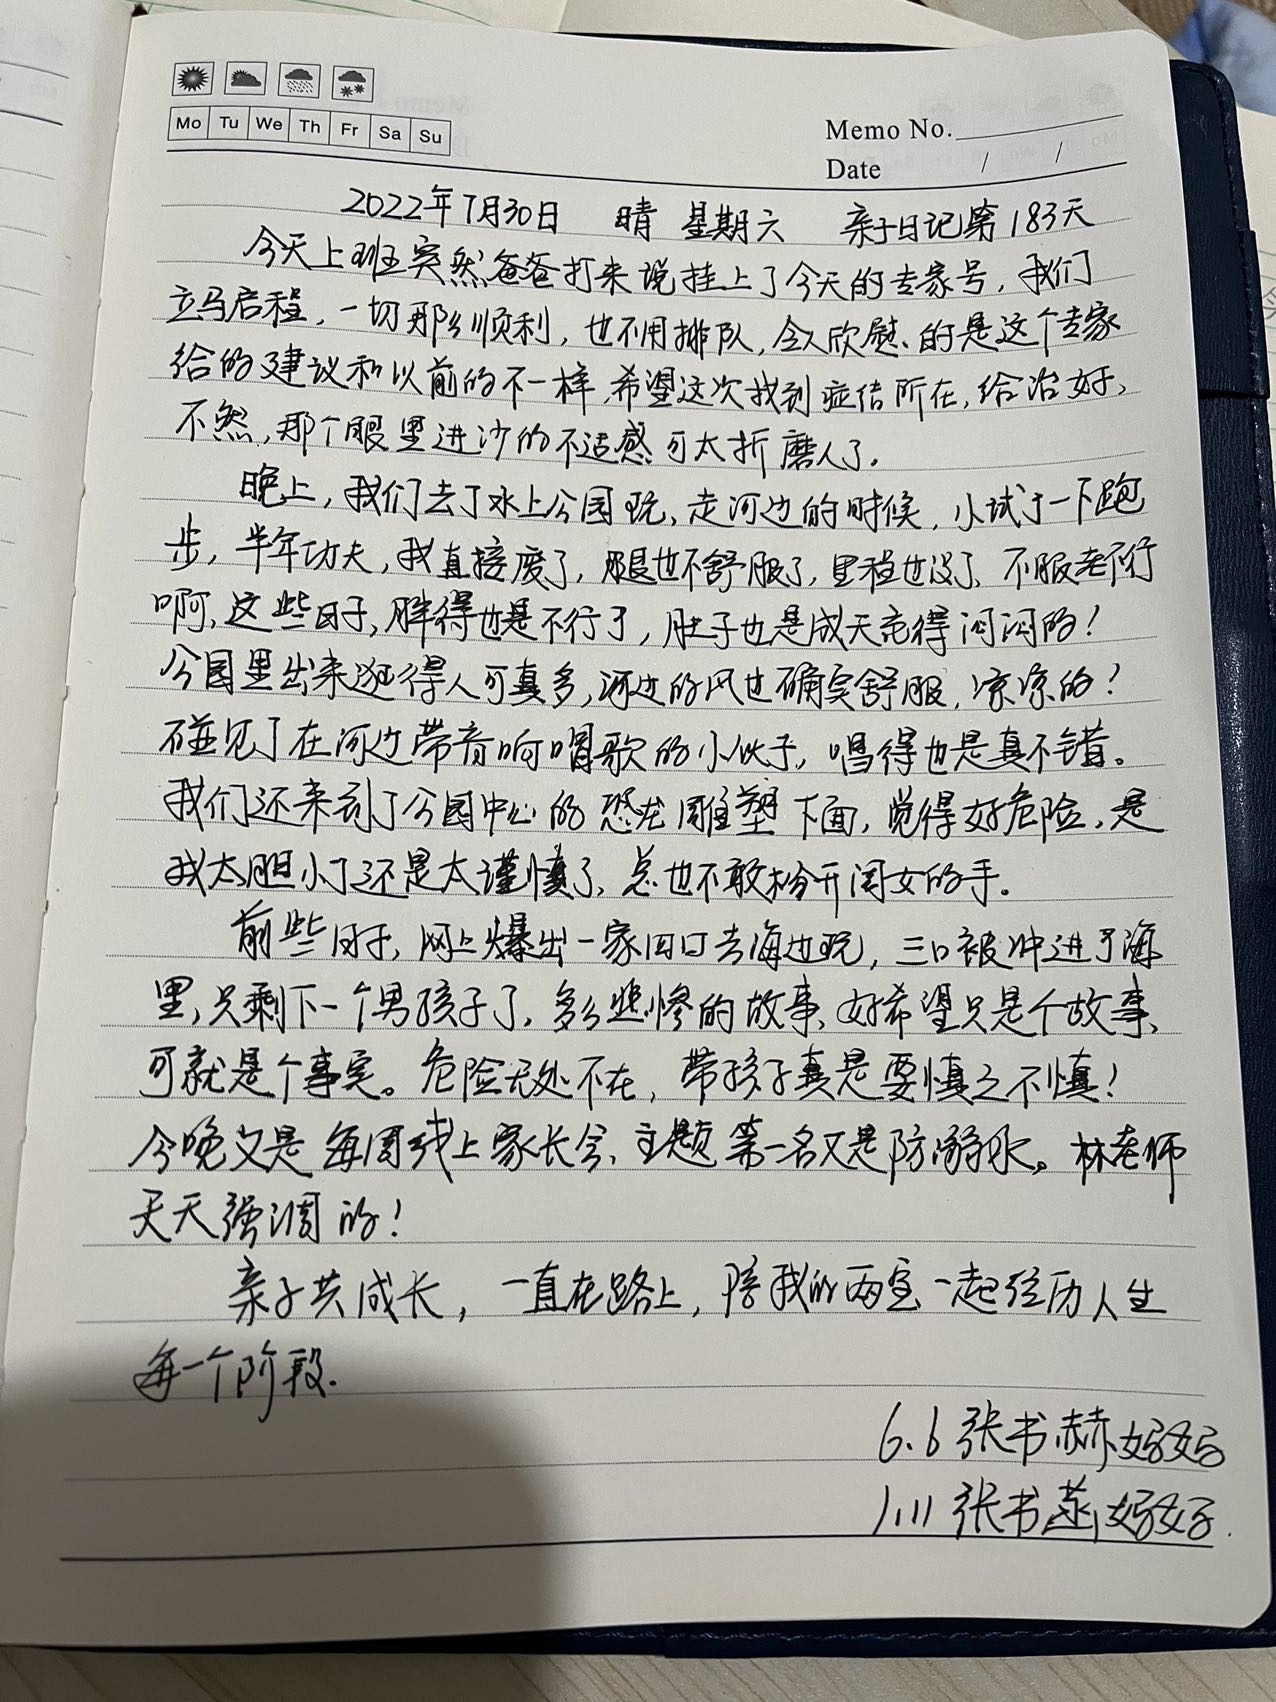 Mo Tu We Th Fr Sa Su
Memo No.
Date / /
2022年7月30日 晴 星期六 亲子日记第183天
今天上班突然爸爸打来说挂上了今天的专家号，我们
立马启程，一切那么顺利，也不用排队，令人欣慰的是这个专家
给的建议和以前的不一样，希望这次找到症结所在，给治好，
不然，那个眼里进沙的不适感可太折磨人了。
晚上，我们去了水上公园玩，走河边的时候，小试了一下跑
步，半年功夫，我直接废了，腿也不舒服了，里程也没了，不服老不行
啊，这些日子，胖得也是不行了，肚子也是成天吃得闷闷的！
公园里出来逛得人可真多，河边的风也确实舒服，凉凉的！
碰见了在河边带音响唱歌的小伙子，唱得也是真不错。
我们还来到了公园中心的恐龙雕塑下面，觉得好危险，是
我太胆小了还是太谨慎了，总也不敢松开闺女的手。
前些日子，网上爆出一家四口去海边玩，三口被冲进了海
里，只剩下一个男孩子了，多么悲惨的故事、好希望只是个故事、
可就是个事实。危险无处不在，带孩子真是要慎之不慎！
今晚又是每周线上家长会，主题第一名又是防溺水。林老师
天天强调的！
亲子共成长，一直在路上，陪我的两宝一起经历人生
每一个阶段.
6.6 张书赫妈妈
1.11 张书菡妈妈.